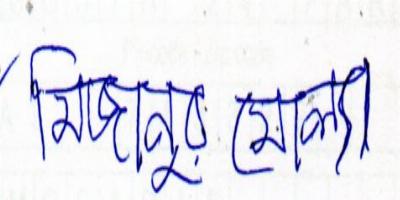 মিজানুর মোল্যা